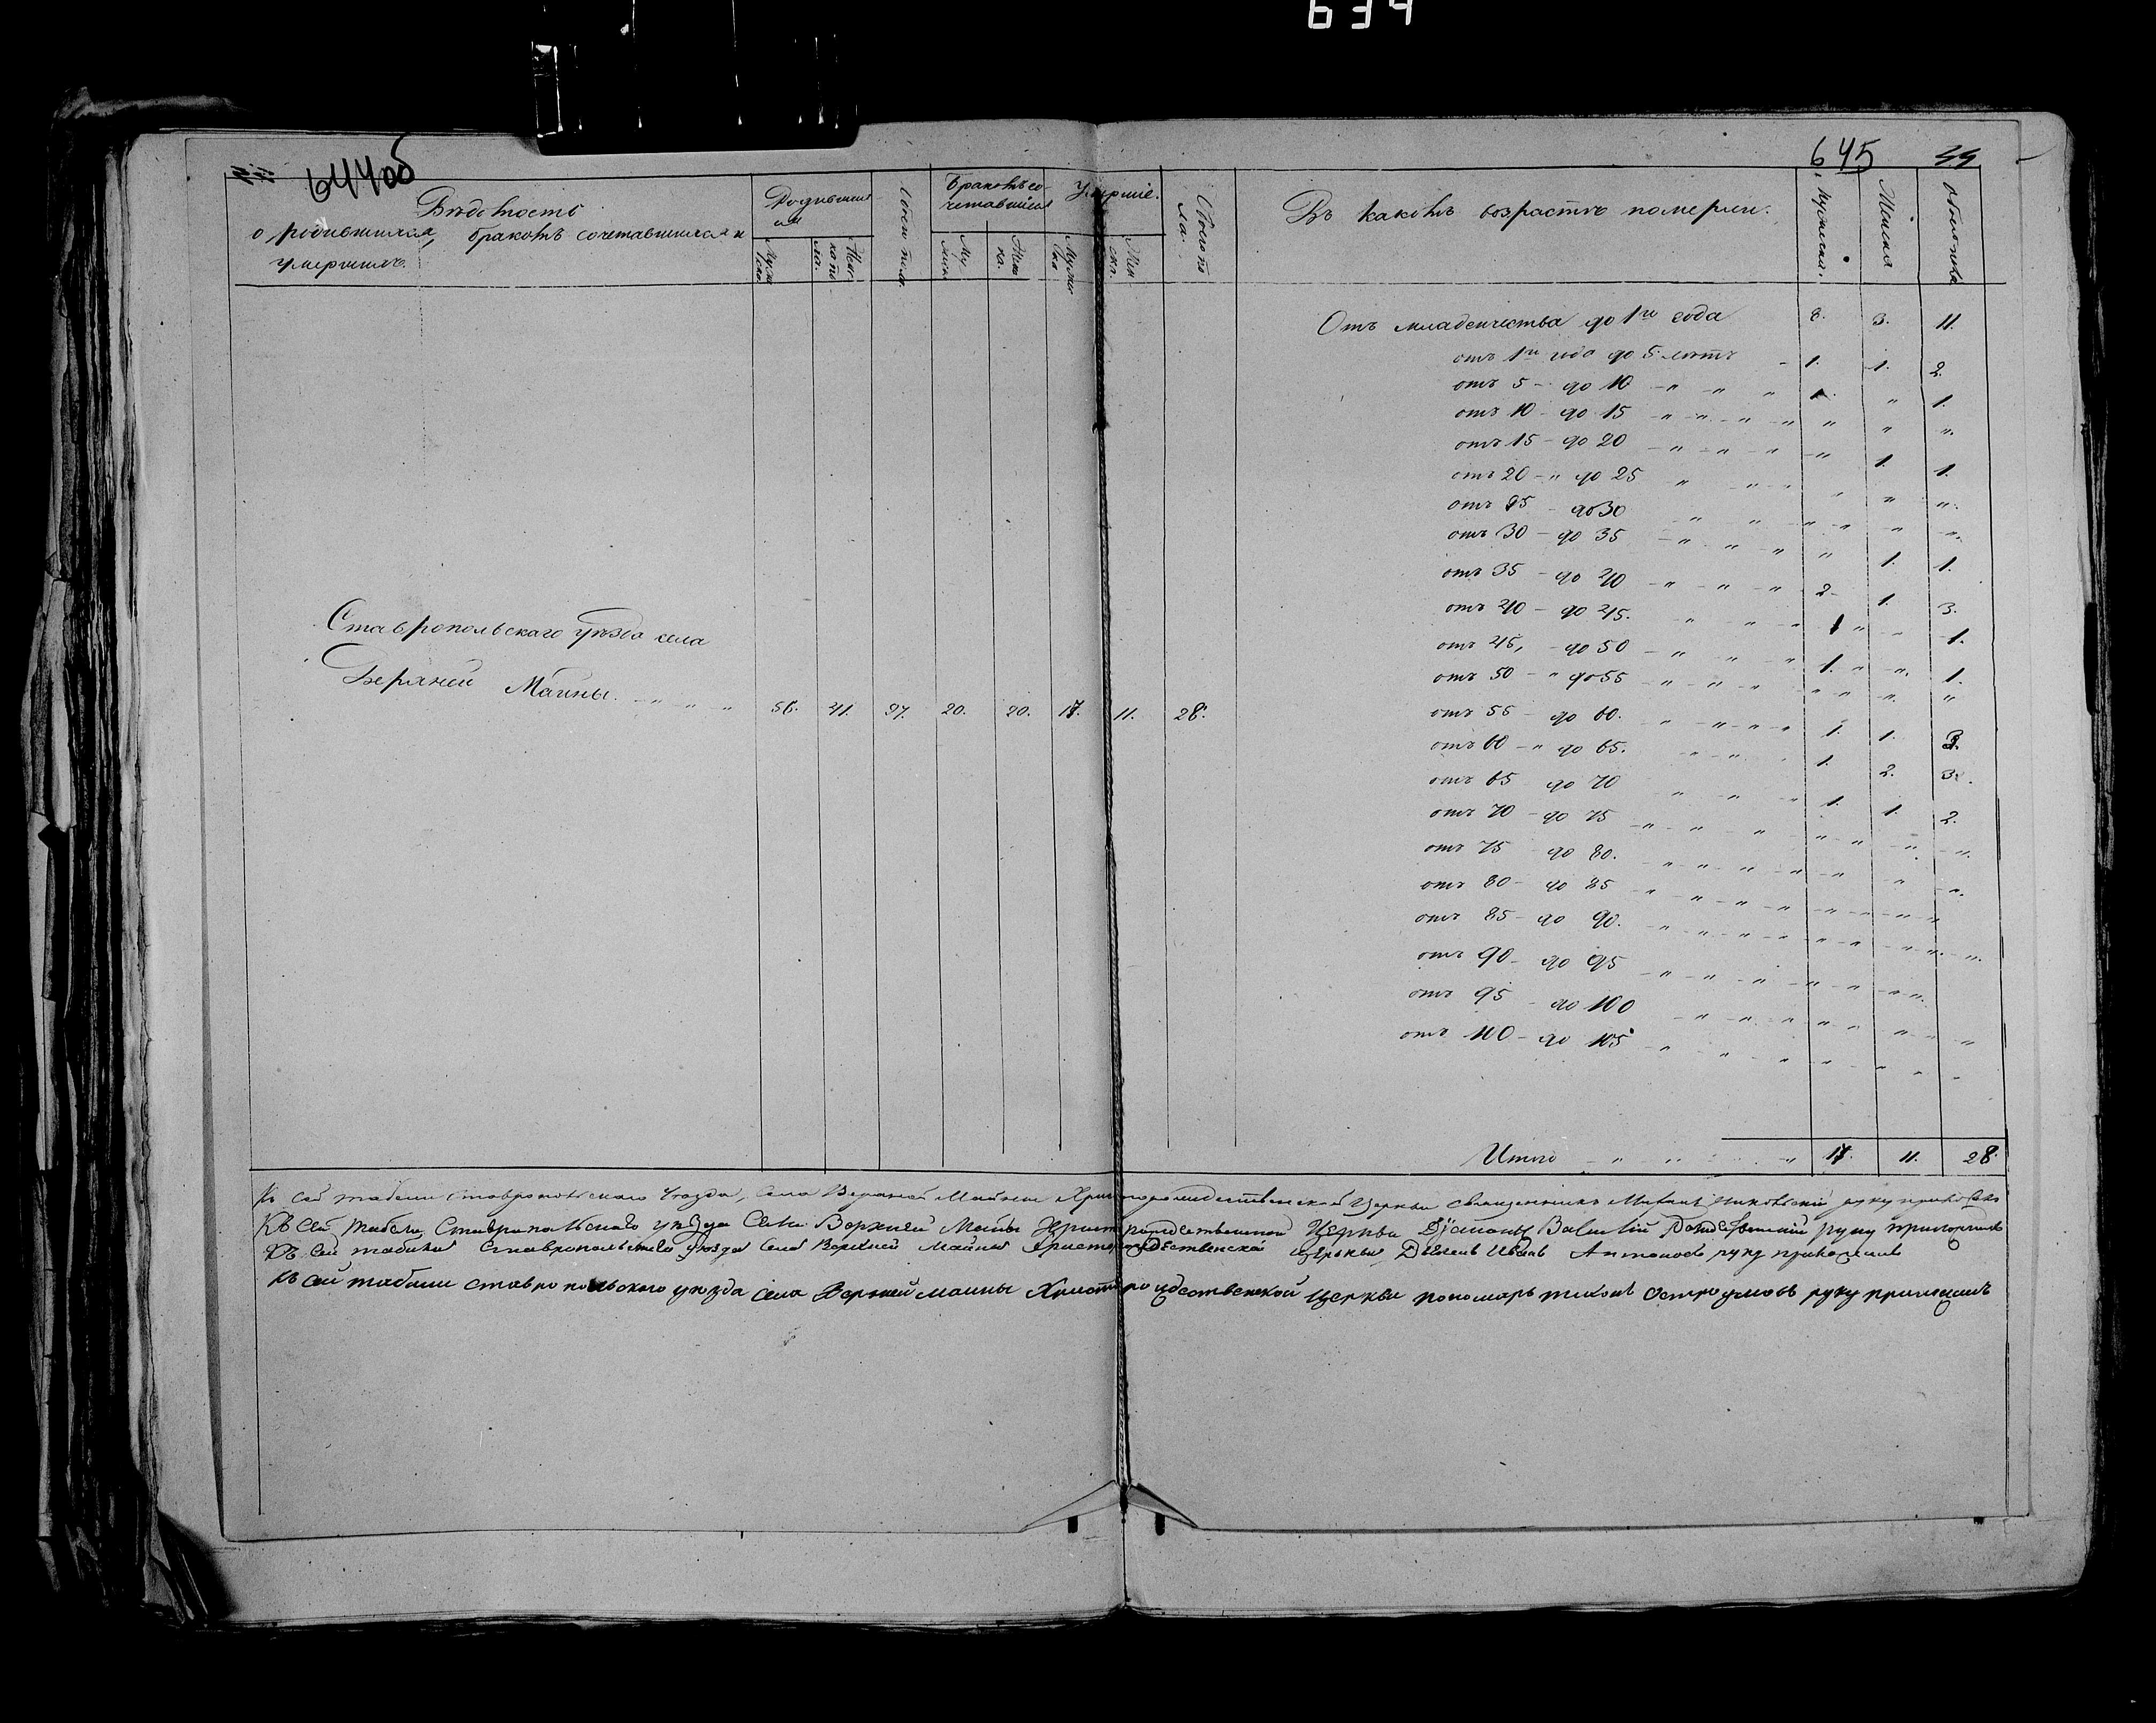 634
644об
645
Вѣдомость
о родившихся, бракомъ сочетавшихся и
умершихъ.
Родившихся
Мужеска
Женска пола
Обоего пола
Бракомъ сочетавшихся
Муж
Женска
Умершіе.
Мужеска
Женска
Обоего пола.
Въ какомъ возрастѣ померли.
Мужеска.
Женска
Обоего пола
Отъ младенчества до 1го года 8. 3. 11.
отъ 1го года до 5 лѣтъ - 1. 1. 2.
отъ 5 - до 10 - " " " 1. " 1.
отъ 10 - до 15 - " - " - " - " " " ".
отъ 15 - до 20 - " - " - " - " 1. 1.
отъ 20 - " до 25 " " " " " ".
отъ 25 - до 30 " " " " " ".
отъ 30 - до 35 - " " " " 1. 1.
отъ 35 - до 40 - " " " 2 1. 3.
отъ 40 - до 45. " " " 1 " - 1.
отъ 45, - до 50 - " " " 1. " " 1.
отъ 50 - " до 55 - " " " " " " "
отъ 55 - до 60. " " " " 1. 1. 2.
отъ 60 - " до 65. " " 1. 2. 3.
отъ 65 до 70 " " " 1. 1. 2.
отъ 70 - до 75 - " " " " " " ".
отъ 75 до 80. - " - " - " - " " " ".
отъ 80 - до 85 - " " " " " " "
отъ 85 - до 90. - " " " " " " " ".
отъ 90 - до 95 - " " " " " " "
отъ 95 - до 100 " " " " " " "
отъ 100 - до 105 " " " " " " "
Ставропольскаго уѣзда села
Верхней Майны. - " - " - " 56. 41. 97. 20. 20. 17. 11. 28.
Итого - " " " " 17. 11. 28.
Къ сей табели Ставропольскаго уѣзда, села Верхней Майны Христорождественской Церкви священникъ руку приложилъ
Къ сей табели Ставропольскаго уѣзда Села Верхней Майны Христорождественской Церкви руку приложилъ
Къ сей табели Ставропольскаго уѣзда села Верхней Майны Христорождественской церкви Дьячекъ Иванъ Антоновъ руку приложилъ
Къ сей табели ставропольскаго уѣзда села Верхней майны Христорождественской церкви пономарь тихонъ остроумовъ руку приложилъ